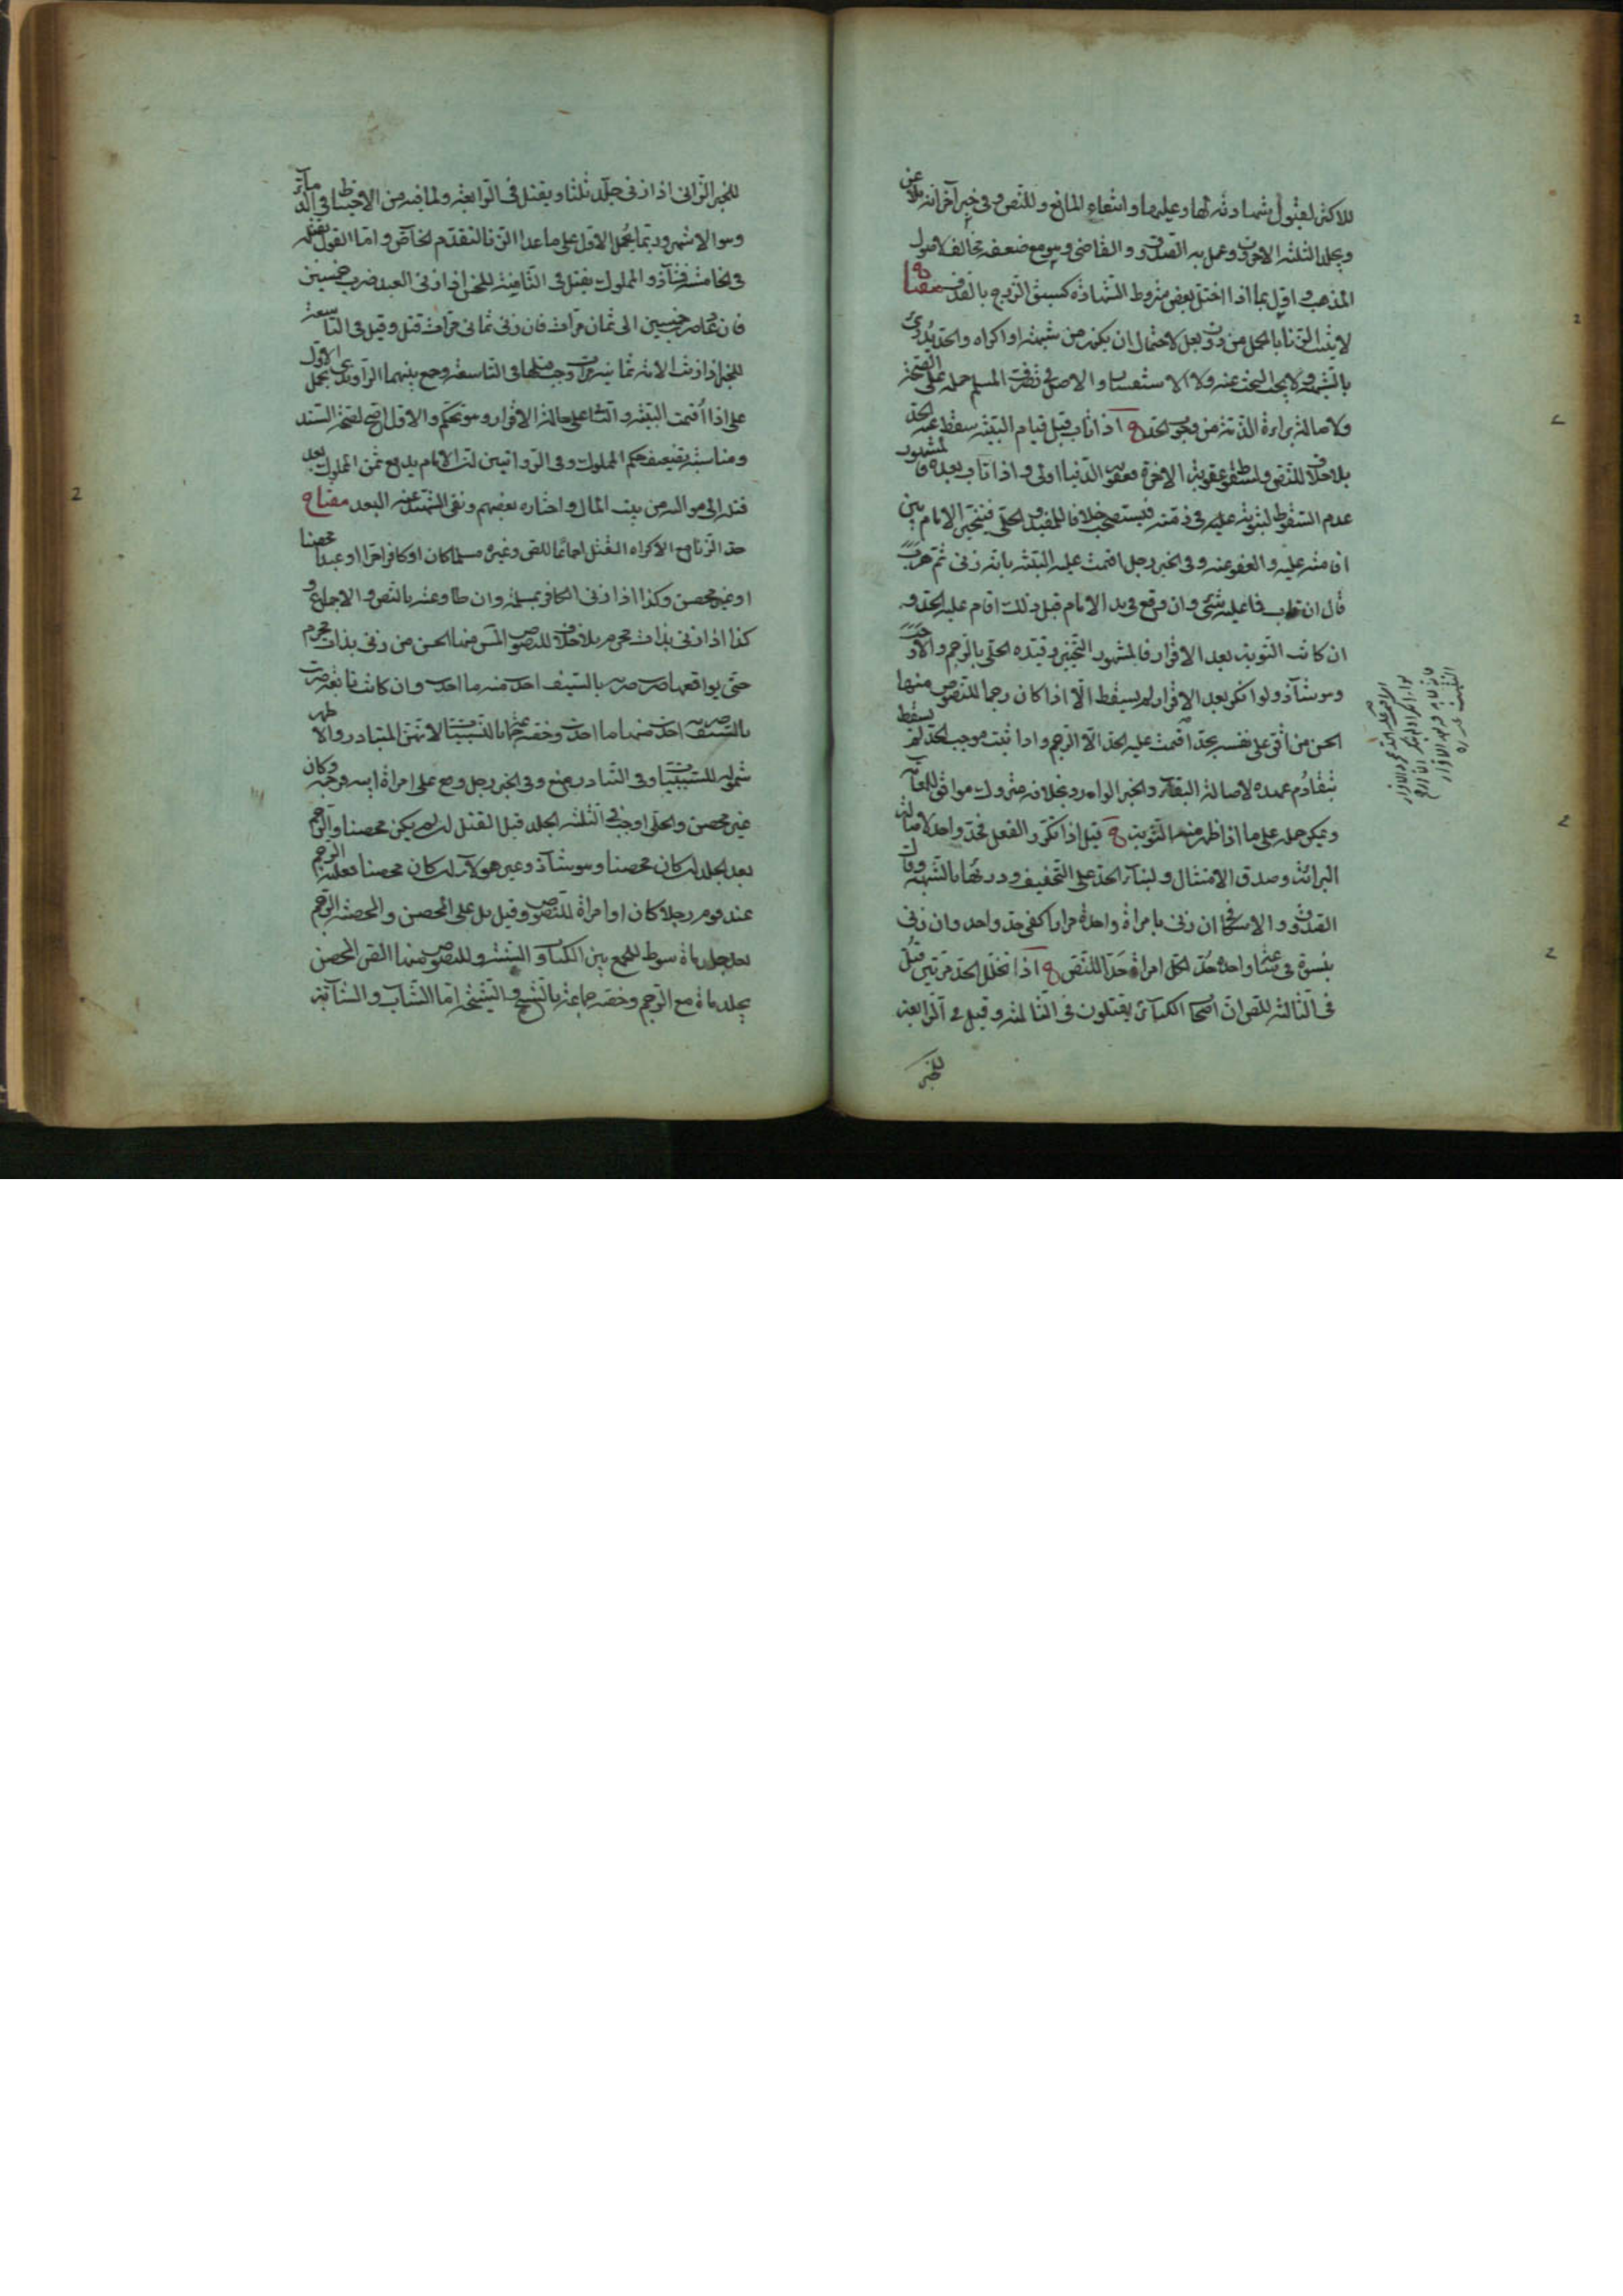 للاكثر لقبول شهادته لها وعليها وانتفاء المانع وللنص وفي خبر آخر انه يلاعن
ويجلد الثلثة الاخرون وعمل به الصدوق والقاضي وهو مع ضعفه مخالف لاصول
المذهب واول بما اذا اختل بعض شروط الشهادة كسبق الزوج بالقذف مفتاح
لا يثبت الزنا بالحمل من دون بعل لاحتمال ان يكون من شبهة او اكراه والحد يدرئ
بالشبهة ولا يجب البحث عنه ولا الاستفسار والاصل في تصرفات المسلم حمله على الصحة
ولاصالة براءة الذمة من وجوب الحد ه اذا تاب قبل قيام البينة سقط عنه الحد
بلا خلاف للنص ولسقوط عقوبة الاخرة فعقوبة الدنيا اولى واذا تاب بعده فالمشهور
عدم السقوط لثبوته عليه في ذمته فيستصحب خلافا للمفيد والحلبي فيتخير الامام بين
اقامته عليه والعفو عنه وفي الخبر رجل اقيمت عليه البينة بانه زنى ثم هرب
قال ان تاب فما عليه شئ وان وقع في يد الامام قبل ذلك اقام عليه الحد و
ان كانت التوبة بعد الاقرار فالمشهور التخيير وقيده الحلي بالرجم والا وجب
وهو شاذ ولو انكر بعد الاقرار لم يسقط الا اذا كان رجما للنصوص منها
الحسن من اقر على نفسه بحد اقمت عليه الحد الا الرجم واذا ثبت موجب الحد لم يسقط
بتقادم عهده لاصالة البقاء والخبر الوارد بخلافه متروك موافق للعامة
ويمكن حمله على ما اذا ظهر منه التوبة ه قيل اذا تكرر الفعل فحد واحد لاصالة
البرائة وصدق الامتثال ولبناء الحد على التخفيف ودرئها بالشبهة وقال
الصدوق والاسكافي ان زنى بامراة واحدة مرارا كفى حد واحد وان زنى
بنسوة في ساعة واحدة حد لكل امراة حدا للنص ه اذا تخلل الحد مرتين قتل
في الثالثة للنص ان اصحاب الكبائر يقتلون في الثالثة وقيل في الرابعة
للخبر
للخبر الزاني اذا زنى جلد ثلثا ويقتل في الرابعة ولما فيه من الاحتياط في الدماء
وهو الاشهر وربما يحمل الاول على ما عدا الزنا لتقدم الخاص واما القول بقتله
في الخامسة فشاذ والمملوك يقتل في الثامنة للحسن اذا زنى العبد ضرب خمسين
فان عاد ضرب خمسين الى ثمان مرات فان زنى ثماني مرات قتل وقيل في التاسعة
للخبر اذا زنت الامة ثمانية مرات وجب قتلها في التاسعة وجمع بينهما الراوندي بحمل الاول
على اذا اقيمت البينة والثاني على حالة الاقرار وهو تحكم والاول اصح لصحة السند
ومناسبة تضعيف حكم المملوك وفي الروايتين ان الامام يدفع ثمن المملوك بعد
قتله الى مواليه من بيت المال واختاره بعضهم ونفى الشهيد عنه البعد مفتاح
حد الزنا مع الاكراه القتل اجماعا للنص وغيره مسلما كان او كافرا حرا او عبدا محصنا
او غير محصن وكذا اذا زنى الكافر بمسلمة وان طاوعته بالنص والاجماع و
كذا اذا زنى بذات محرم بلا خلاف للنصوص المس منها الحسن من زنى بذات محرم
حتى يواقعها ضرب ضربة بالسيف اخذت منه ما اخذت وان كانت تابعته ضربت
بالسيف ضربة اخذت منها ما اخذت وخصه جماعة بالنسبيات لانهن المتبادر والاظهر
شموله للسببيات وفي التبادر منع وفي الخبر رجل وقع على امراة ابيه فرجمه وكان
غير محصن والحلي اوجب في الثلثة الجلد قبل القتل ان لم يكن محصنا والرجم
بعد الجلد ان كان محصنا وهو شاذ وغير هؤلاء ان كان محصنا فعليه الرجم
عند قوم رجلا كان او امراة للنصوص وقيل بل على المحصن والمحصنة الرجم
بعد جلد ماة سوط للجمع بين الكتاب والسنة وللنصوص منها النص المحصن
يجلد ماة مع الرجم وخصه جماعة بالشيخ والشيخة اما الشاب والشابة